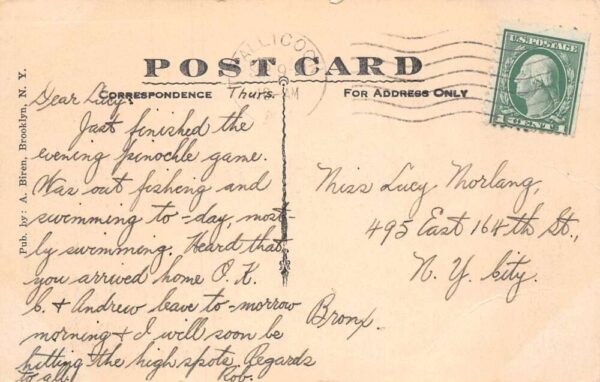 POST CARD
CORRESPONDENCE
FOR ADDRESS ONLY
Pub. by: A. Biren, Brooklyn, N. Y.
U.S. POSTAGE
1 CENT 1
ALLICOO
9
AM
Thurs.
Dear Lucy:
Just finished the
evening pinochle game.
Was out fishing and
swimming to-day, most-
ly swimming. Heard that
you arrived home O. K.
C. + Andrew leave to-morrow
morning + I will soon be
hitting the high spots. Regards
to all. Rob.
Miss Lucy Norlang,
495 East 164th St.,
N. Y. City.
Bronx.